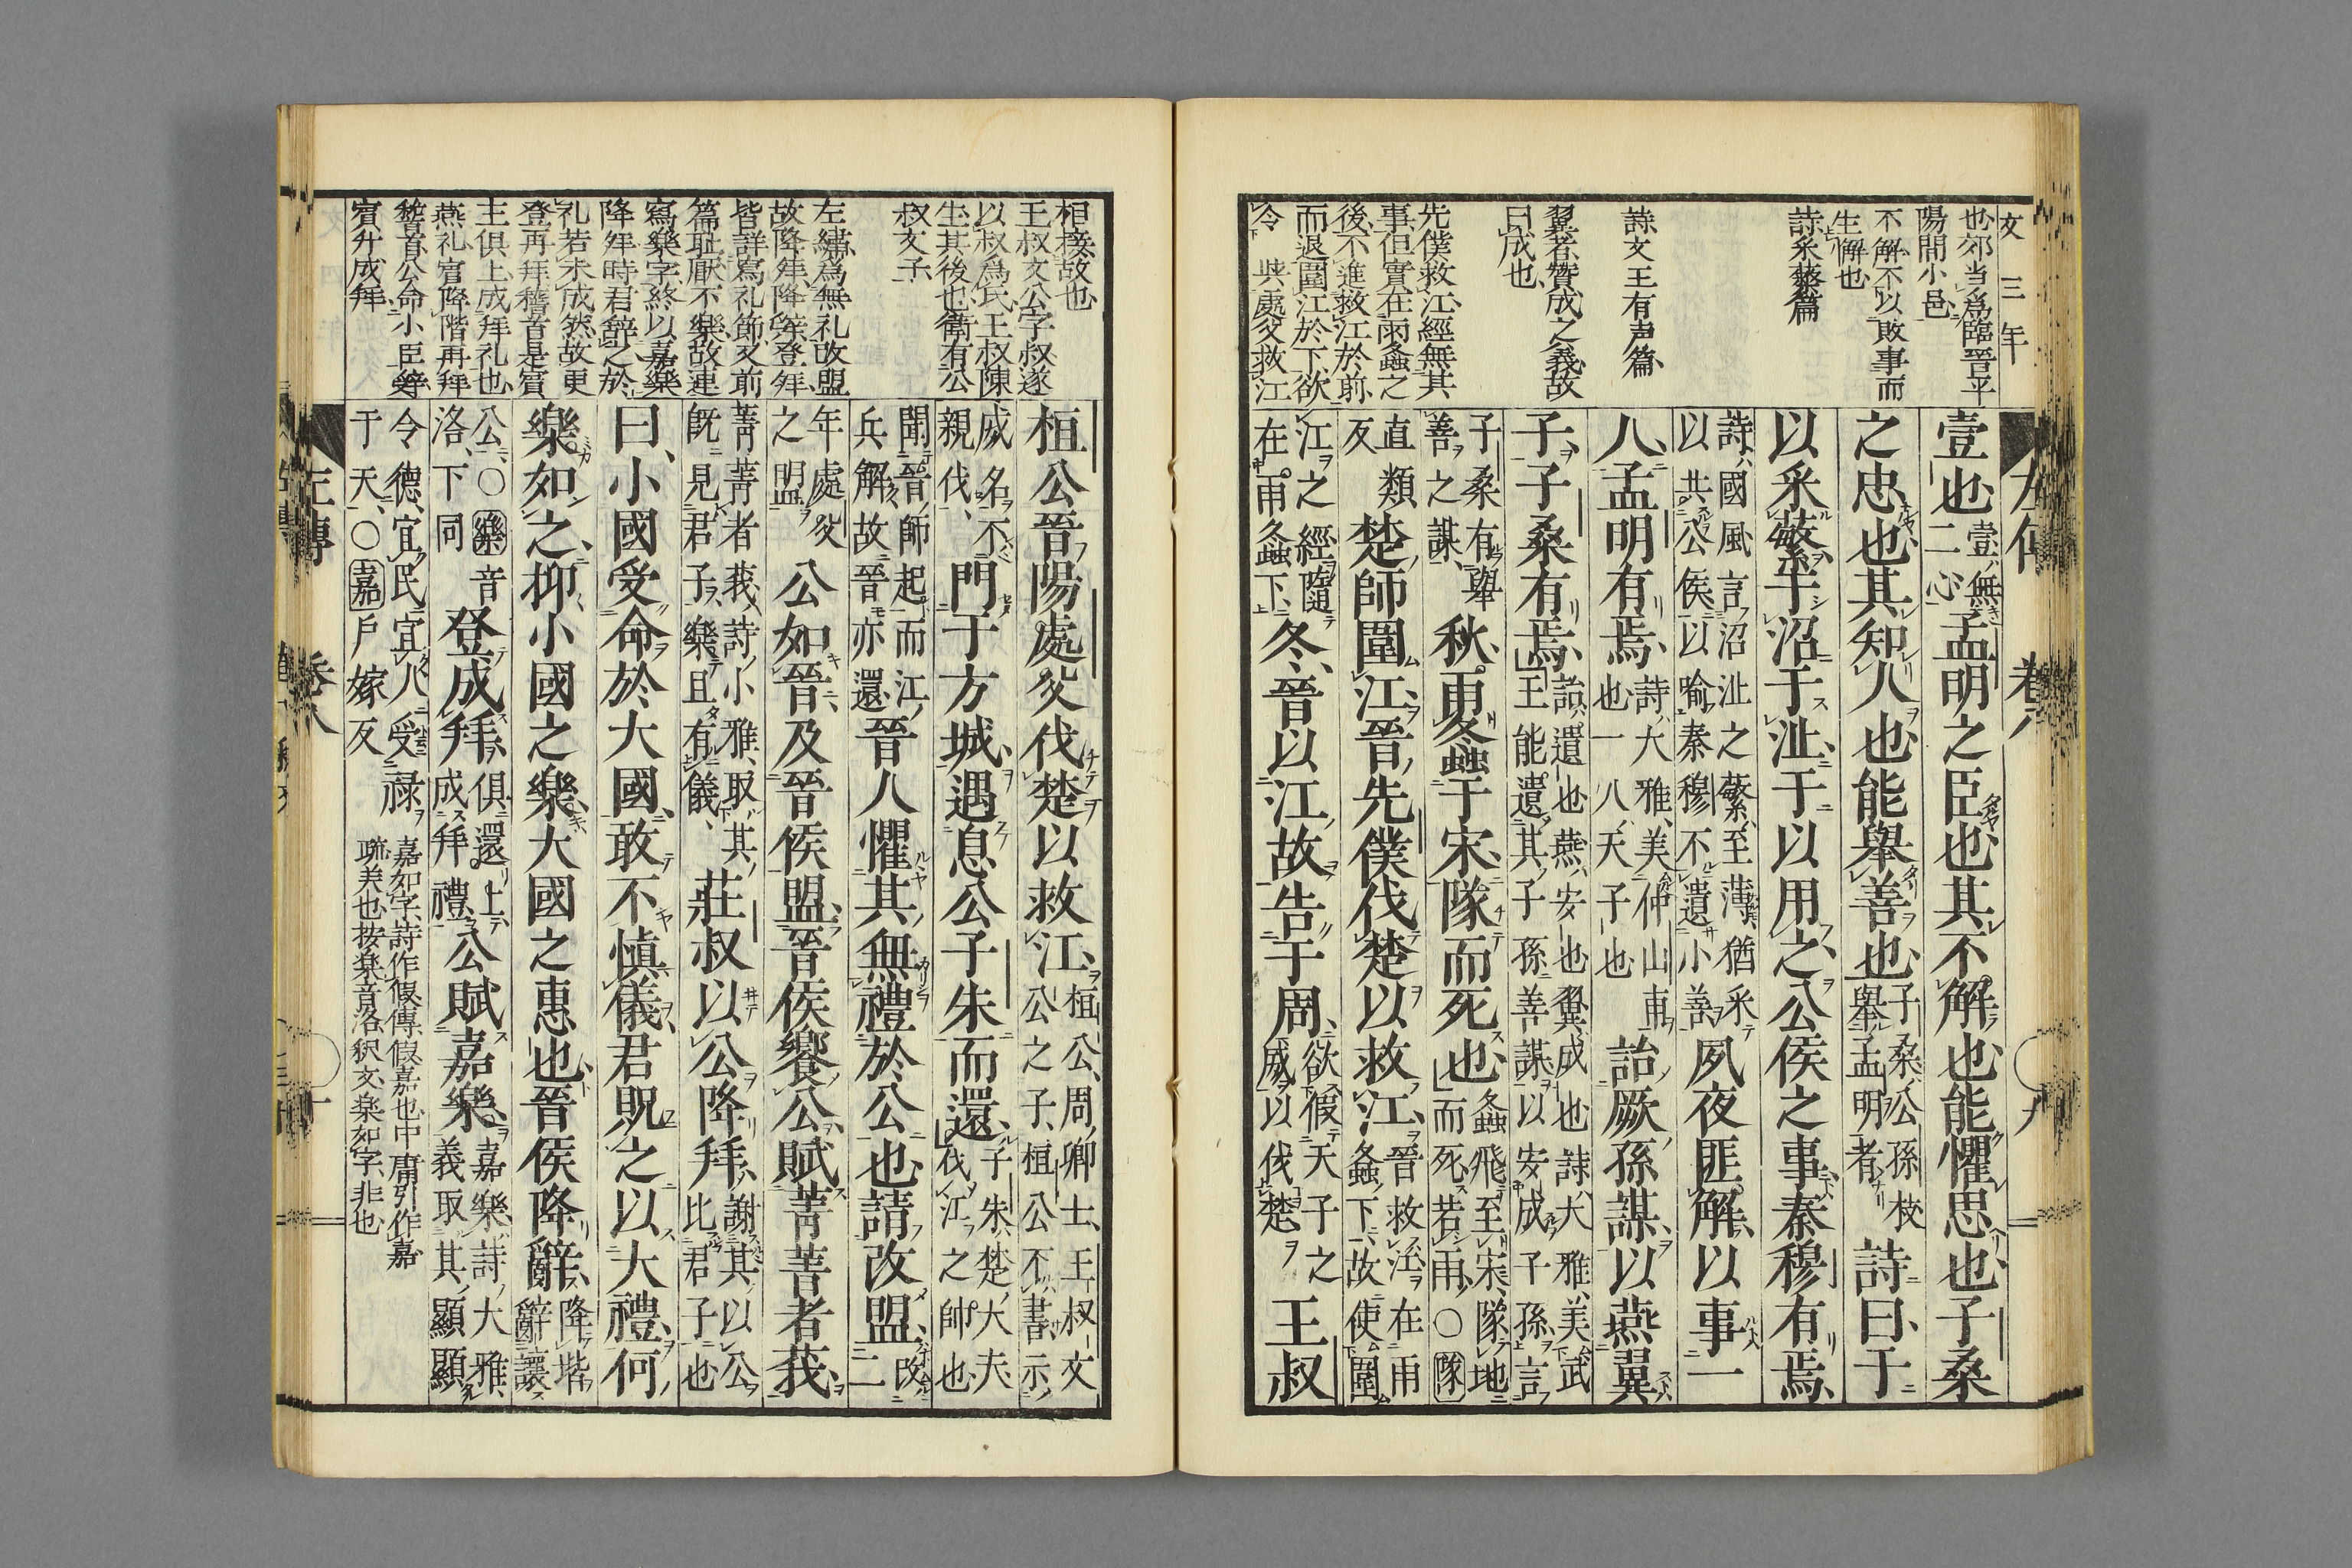 文三年
也郊当爲臨晋平
陽間小邑
不解不以敗事而
生解也
詩采蘩篇
詩文王有声篇
翼者賛成之義故
曰成也
先僕救江經無其
事但實在雨螽之
後不進救江於前
而退圍江於下欲
令与處父救江
左傳 卷八 九
壹也壹無二心孟明之臣也其不解也能懼思也子桑
之忠也其知人也能舉善也子桑公孫枝舉孟明者詩曰于
以采蘩于沼于沚于以用之公侯之事秦穆有焉
詩國風言沼沚之蘩至薄猶采以共公侯以喻秦穆不遺小善夙夜匪解以事一
人孟明有焉詩大雅美仲山甫也一人天子也詒厥孫謀以燕翼
子子桑有焉詒遺也燕安也翼成也詩大雅美武王能遺其子孫善謀以安成子孫言
子桑有舉善之謀秋雨螽于宋隊而死也螽飛至宋隊地而死若雨○隊
直類反楚師圍江晉先僕伐楚以救江晉救江在雨螽下故使圍
江之經隨在雨螽下冬晉以江故告于周欲假天子之威以伐楚王叔
相接故也
王叔文公字叔遂
以叔爲氏王叔陳
生其後也衞有公
叔文子
左繡爲無礼改盟
故降拜降辭登拜
皆詳寫礼節又前
篇耻厭不樂故連
寫樂字終以嘉樂
降拜時君辭之於
礼若未成然故更
登再拜稽首是賓
主倶上成拜礼也
燕礼賓降階再拜
稽首公命小臣辭
賓升成拜
桓公晉陽處父伐楚以救江桓公周卿士王叔文公之子桓公不書示
威名不親伐門于方城遇息公子朱而還子朱楚大夫伐江之帥也
聞晉師起而江兵解故晉亦還晉人懼其無禮於公也請改盟改二
年處父之盟公如晉及晉侯盟晉侯饗公賦菁菁者莪
菁菁者莪詩小雅取其既見君子樂且有儀莊叔以公降拜謝其以公比君子也
曰小國受命於大國敢不慎儀君貺之以大禮何
樂如之抑小國之樂大國之惠也晉侯降辭降堦辭讓
公○樂音洛下同登成拜倶還上成拜禮公賦嘉樂嘉樂詩大雅義取其顯顯
令德宜民宜人受祿于天○嘉戶嫁反嘉如字詩作假傳假嘉也中庸引作嘉
疏美也按楽音洛釈文楽如字非也
左傳 卷八